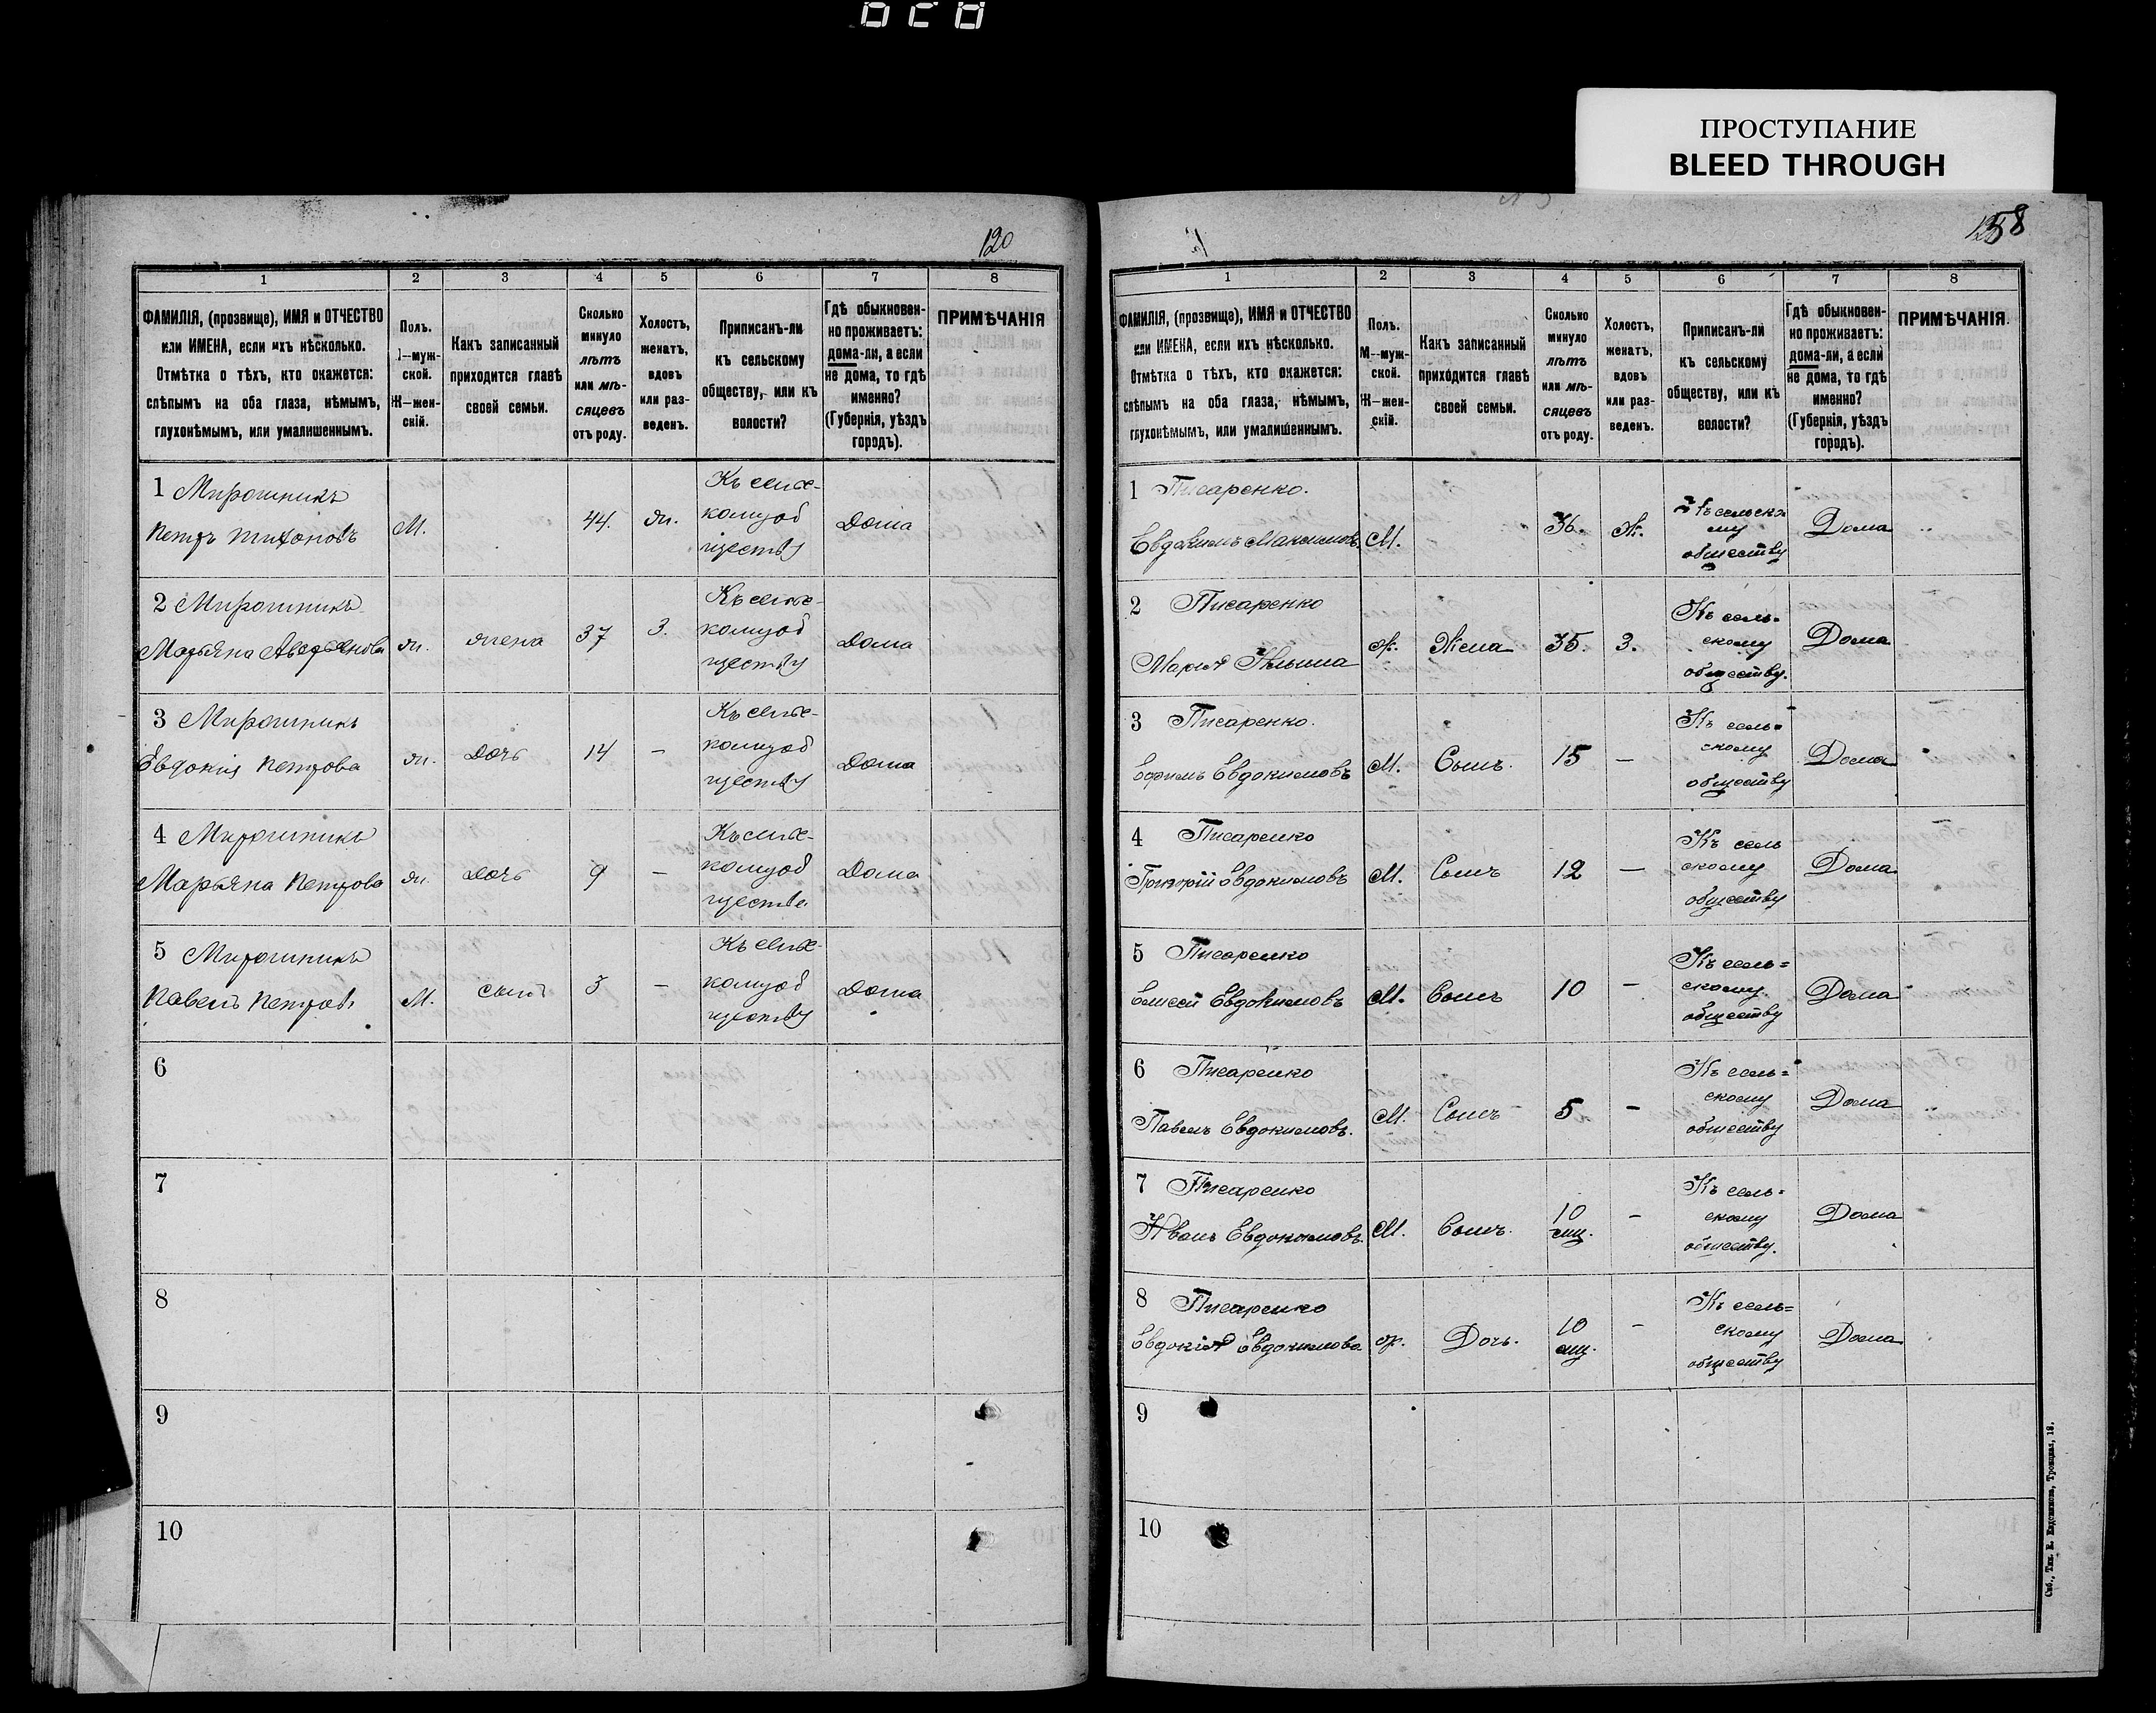 020
ПРОСТУПАНИЕ
BLEED THROUGH
120
1 2 3 4 5 6 7 8
ФАМИЛІЯ, (прозвище), ИМЯ и ОТЧЕСТВО
или ИМЕНА, если ихъ нѣсколько.
Отмѣтка о тѣхъ, кто окажется:
слѣпымъ на оба глаза, нѣмымъ,
глухонѣмымъ, или умалишеннымъ.
Полъ.
М—муж-
ской.
Ж—жен-
скій.
Какъ записанный
приходится главѣ
своей семьи.
Сколько
минуло
лѣтъ
или мѣ-
сяцевъ
отъ роду.
Холостъ,
женатъ,
вдовъ
или раз-
веденъ.
Приписанъ-ли
къ сельскому
обществу, или къ
волости?
Гдѣ обыкновен-
но проживаетъ:
дома-ли, а если
не дома, то гдѣ
именно?
(Губернія, уѣздъ
городъ).
ПРИМѢЧАНІЯ
1 Мирошникъ
Петръ Тихоновъ
М.
44.
ж.
Къ сельс-
кому об
ществу
Дома
2 Мирошникъ
Марьяна
ж.
жена
37
3.
Къ сельс-
кому об
ществу
Дома
3 Мирошникъ
Евдокія Петрова
ж.
Дочь
14
—
Къ сельс-
кому об
ществу
Дома
4 Мирошникъ
Марьяна Петрова
ж.
Дочь
9
—
Къ сельс-
кому об
ществу
Дома
5 Мирошникъ
Павелъ Петровъ
М.
сынъ
3
—
Къ сельс-
кому об
ществу
Дома
6
7
8
9
10
158
1 2 3 4 5 6 7 8
ФАМИЛІЯ, (прозвище), ИМЯ и ОТЧЕСТВО
или ИМЕНА, если ихъ нѣсколько.
Отмѣтка о тѣхъ, кто окажется:
слѣпымъ на оба глаза, нѣмымъ,
глухонѣмымъ, или умалишеннымъ.
Полъ.
М—муж-
ской.
Ж—жен-
скій.
Какъ записанный
приходится главѣ
своей семьи.
Сколько
минуло
лѣтъ
или мѣ-
сяцевъ
отъ роду.
Холостъ,
женатъ,
вдовъ
или раз-
веденъ.
Приписанъ-ли
къ сельскому
обществу, или къ
волости?
Гдѣ обыкновен-
но проживаетъ:
дома-ли, а если
не дома, то гдѣ
именно?
(Губернія, уѣздъ
городъ).
ПРИМѢЧАНІЯ.
1 Писаренко.
Евдокимъ Максимовъ
М.
36.
Ж.
Къ сельско
му
обществу
Дома
2 Писаренко
Марія Ильина
Ж.
Жена
35.
3.
Къ сель=
скому
обществу.
Дома
3 Писаренко.
Ефимъ Евдокимовъ
М.
Сынъ.
15
—
Къ сель=
скому
обществу
Дома
4 Писаренко
Григорій Евдокимовъ
М.
Сынъ
12
—
Къ сель
скому
обществу
Дома
5 Писаренко
Елисей Евдокимовъ
М.
Сынъ
10
—
Къ сель=
скому.
обществу
Дома
6 Писаренко
Павелъ Евдокимовъ.
М.
Сынъ
5
—
Къ сель=
скому
обществу
Дома
7 Писаренко
Иванъ Евдокимовъ.
М.
Сынъ.
10
мц.
—
Къ сель=
скому
обществу.
Дома
8 Писаренко
Евдокія Евдокимова
ж.
Дочь.
10
мц.
—
Къ сель=
скому
обществу
Дома
9
10